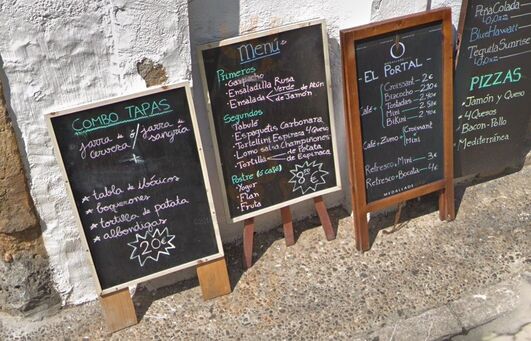 COMBO TAPAS
jarra de cerveza / jarra de sangría
★ tabla de ibéricos
★ boquerones
★ tortilla de patata
★ albondigas
20€
Menú
Primeros
- Gazpacho
- Ensaladilla Rusa
- Ensalada Verde de Atún
de Jamón
Segundos
- Tabulé
- Espaguetis Carbonara
- Tortellini Espinaca 4 Queso
- Lomo salsa Champiñones
- Tortilla de Patata
de Espinaca
Postre (o café)
- Yogur
- Flan
- Fruta
€
EL PORTAL
Café +
Croissant - 2€
Bizcocho
Tostadas
Mini
Bikini
Café / Zumo +
Croissant
Mini
Refresco + Mini - 3€
Refresco + Bocata - 4€
MEDALLADE
Piña Colada
Blue Hawaii
Tequila Sunrise
PIZZAS
• Jamón y Queso
• 4 Quesos
• Bacon - Pollo
• Mediterránea